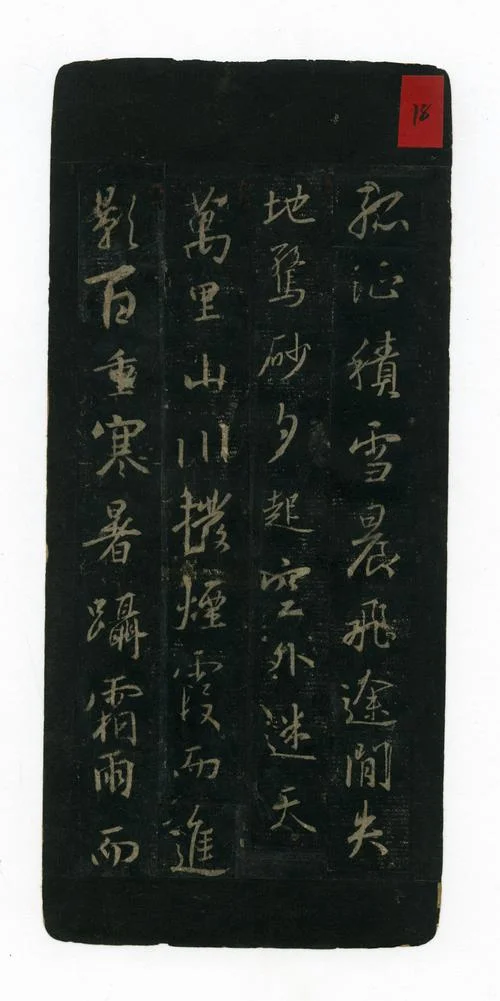 18
孤征積雪晨飛途閒失
地驚砂夕起空外迷天
萬里山川撥煙霞而進
影百重寒暑躡霜雨而